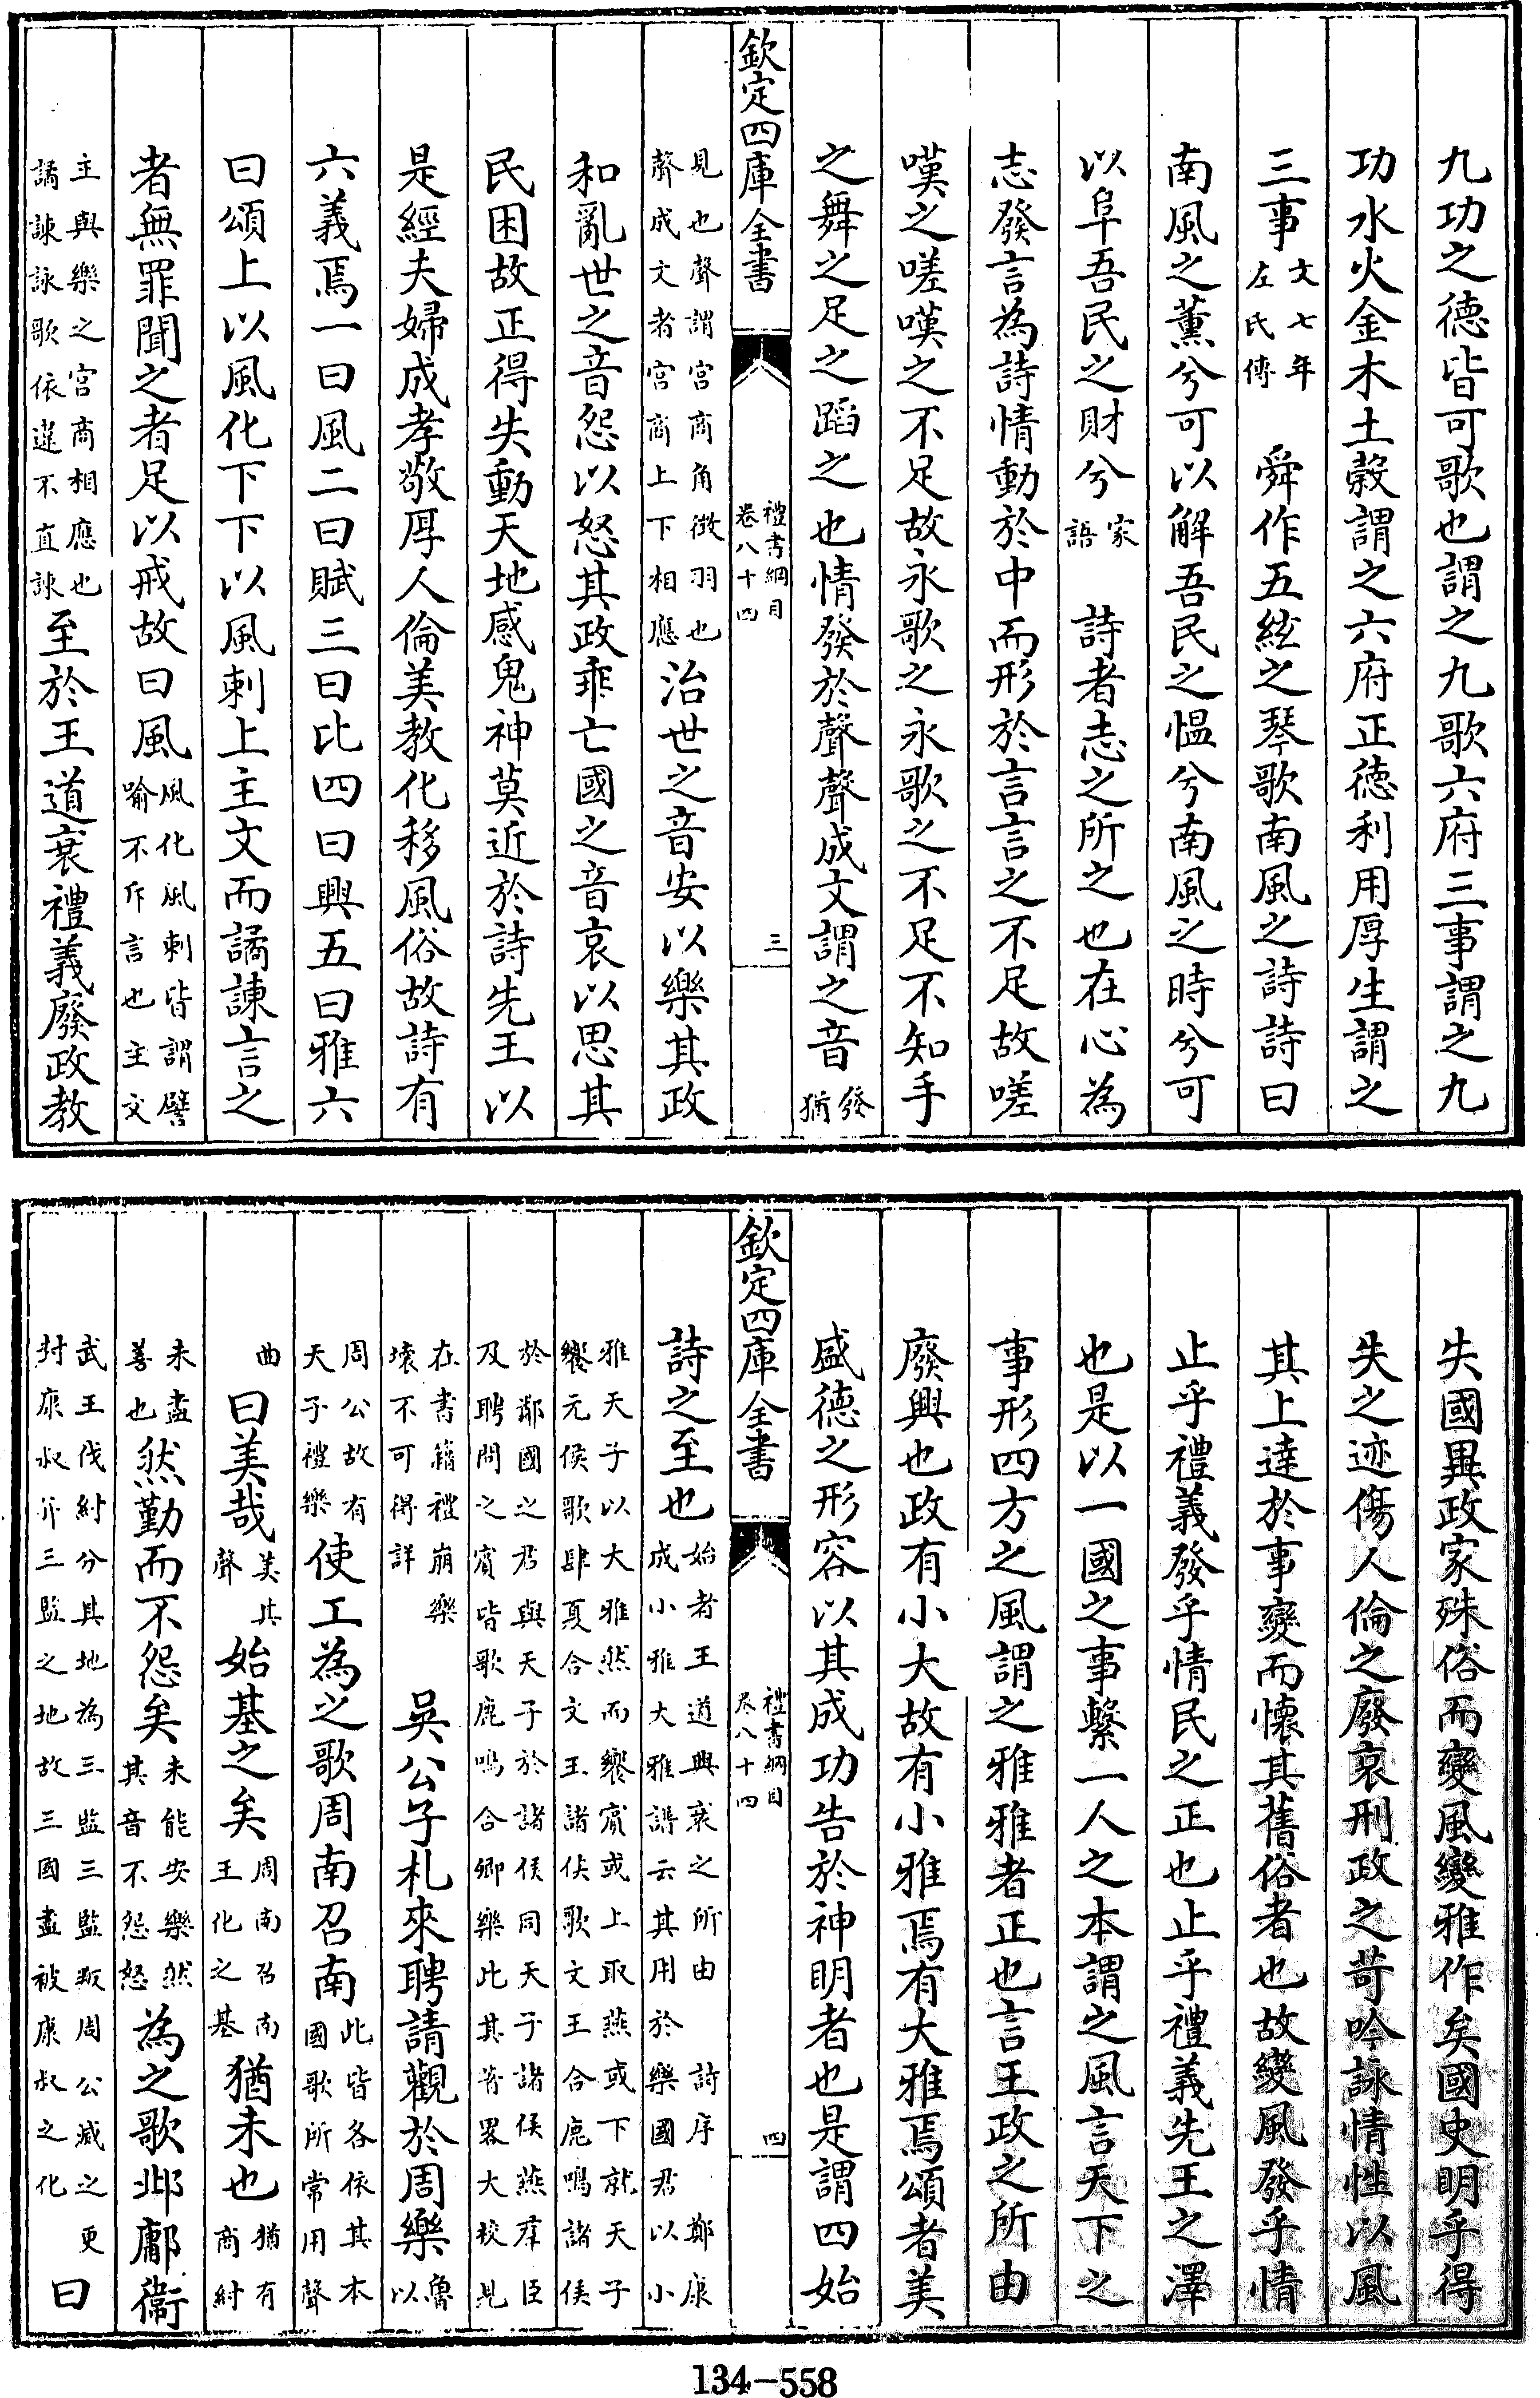 九功之德皆可歌也謂之九歌六府三事謂之九
功水火金木土穀謂之六府正德利用厚生謂之
三事文七年左氏傳　舜作五絃之琴歌南風之詩詩曰
南風之薰兮可以解吾民之愠兮南風之時兮可
以阜吾民之財兮家語　詩者志之所之也在心為
志發言為詩情動於中而形於言言之不足故嗟
嘆之嗟嘆之不足故永歌之永歌之不足不知手
之舞之足之蹈之也情發於聲聲成文謂之音發猶
欽定四庫全書　禮書綱目卷八十四　三
見也聲謂宫商角徵羽也聲成文者宫商上下相應治世之音安以樂其政
和亂世之音怨以怒其政乖亡國之音哀以思其
民困故正得失動天地感鬼神莫近於詩先王以
是經夫婦成孝敬厚人倫美教化移風俗故詩有
六義焉一曰風二曰賦三曰比四曰興五曰雅六
曰頌上以風化下下以風刺上主文而譎諫言之
者無罪聞之者足以戒故曰風風化風刺皆謂譬喻不斥言也主文
主與樂之宫商相應也譎諫詠歌依違不直諫至於王道衰禮義廢政教
失國異政家殊俗而變風變雅作矣國史明乎得
失之迹傷人倫之廢哀刑政之苛吟詠情性以風
其上達於事變而懷其舊俗者也故變風發乎情
止乎禮義發乎情民之正也止乎禮義先王之澤
也是以一國之事繫一人之本謂之風言天下之
事形四方之風謂之雅雅者正也言王政之所由
廢興也政有小大故有小雅焉有大雅焉頌者美
盛德之形容以其成功告於神明者也是謂四始
欽定四庫全書　禮書綱目卷八十四　四
詩之至也始者王道興衰之所由　詩序　鄭康成小雅大雅譜云其用於樂國君以小
雅天子以大雅然而饗賓或上取燕或下就天子饗元侯歌肆夏合文王諸侯歌文王合鹿鳴諸侯
於鄰國之君與天子於諸侯同天子諸侯燕羣臣及聘問之賓皆歌鹿鳴合鄉樂此其著畧大校見
在書籍禮崩樂壞不可得詳　吳公子札來聘請觀於周樂魯以
周公故有天子禮樂使工為之歌周南召南此皆各依其本國歌所常用聲
曲曰美哉美其聲始基之矣周南召南王化之基猶未也猶有商紂
未盡善也然勤而不怨矣未能安樂然其音不怨怒為之歌邶鄘衞
武王伐紂分其地為三監三監叛周公滅之更封康叔并三監之地故三國盡被康叔之化曰
134-558